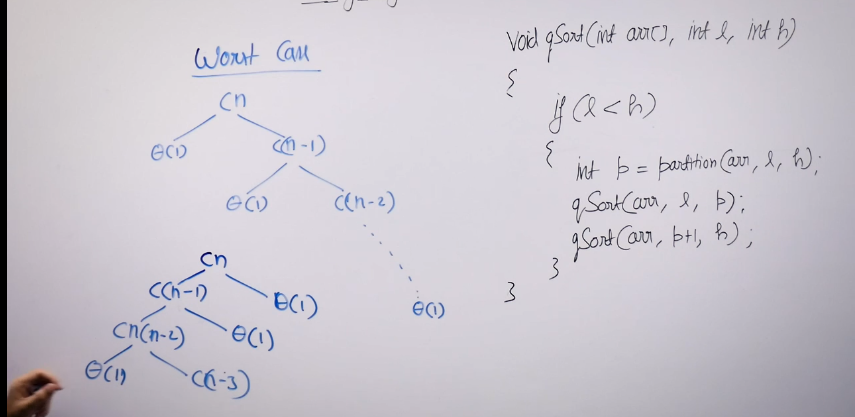 Worst Case
Cn
θ(1) C(n-1)
θ(1) C(n-2)
θ(1)
Cn
C(n-1) θ(1)
Cn(n-2) θ(1)
θ(1) C(n-3)
Void qSort(int arr[], int l, int h)
{
if (l < h)
{
int p = partition(arr, l, h);
qSort(arr, l, p);
qSort(arr, p+1, h);
}
}